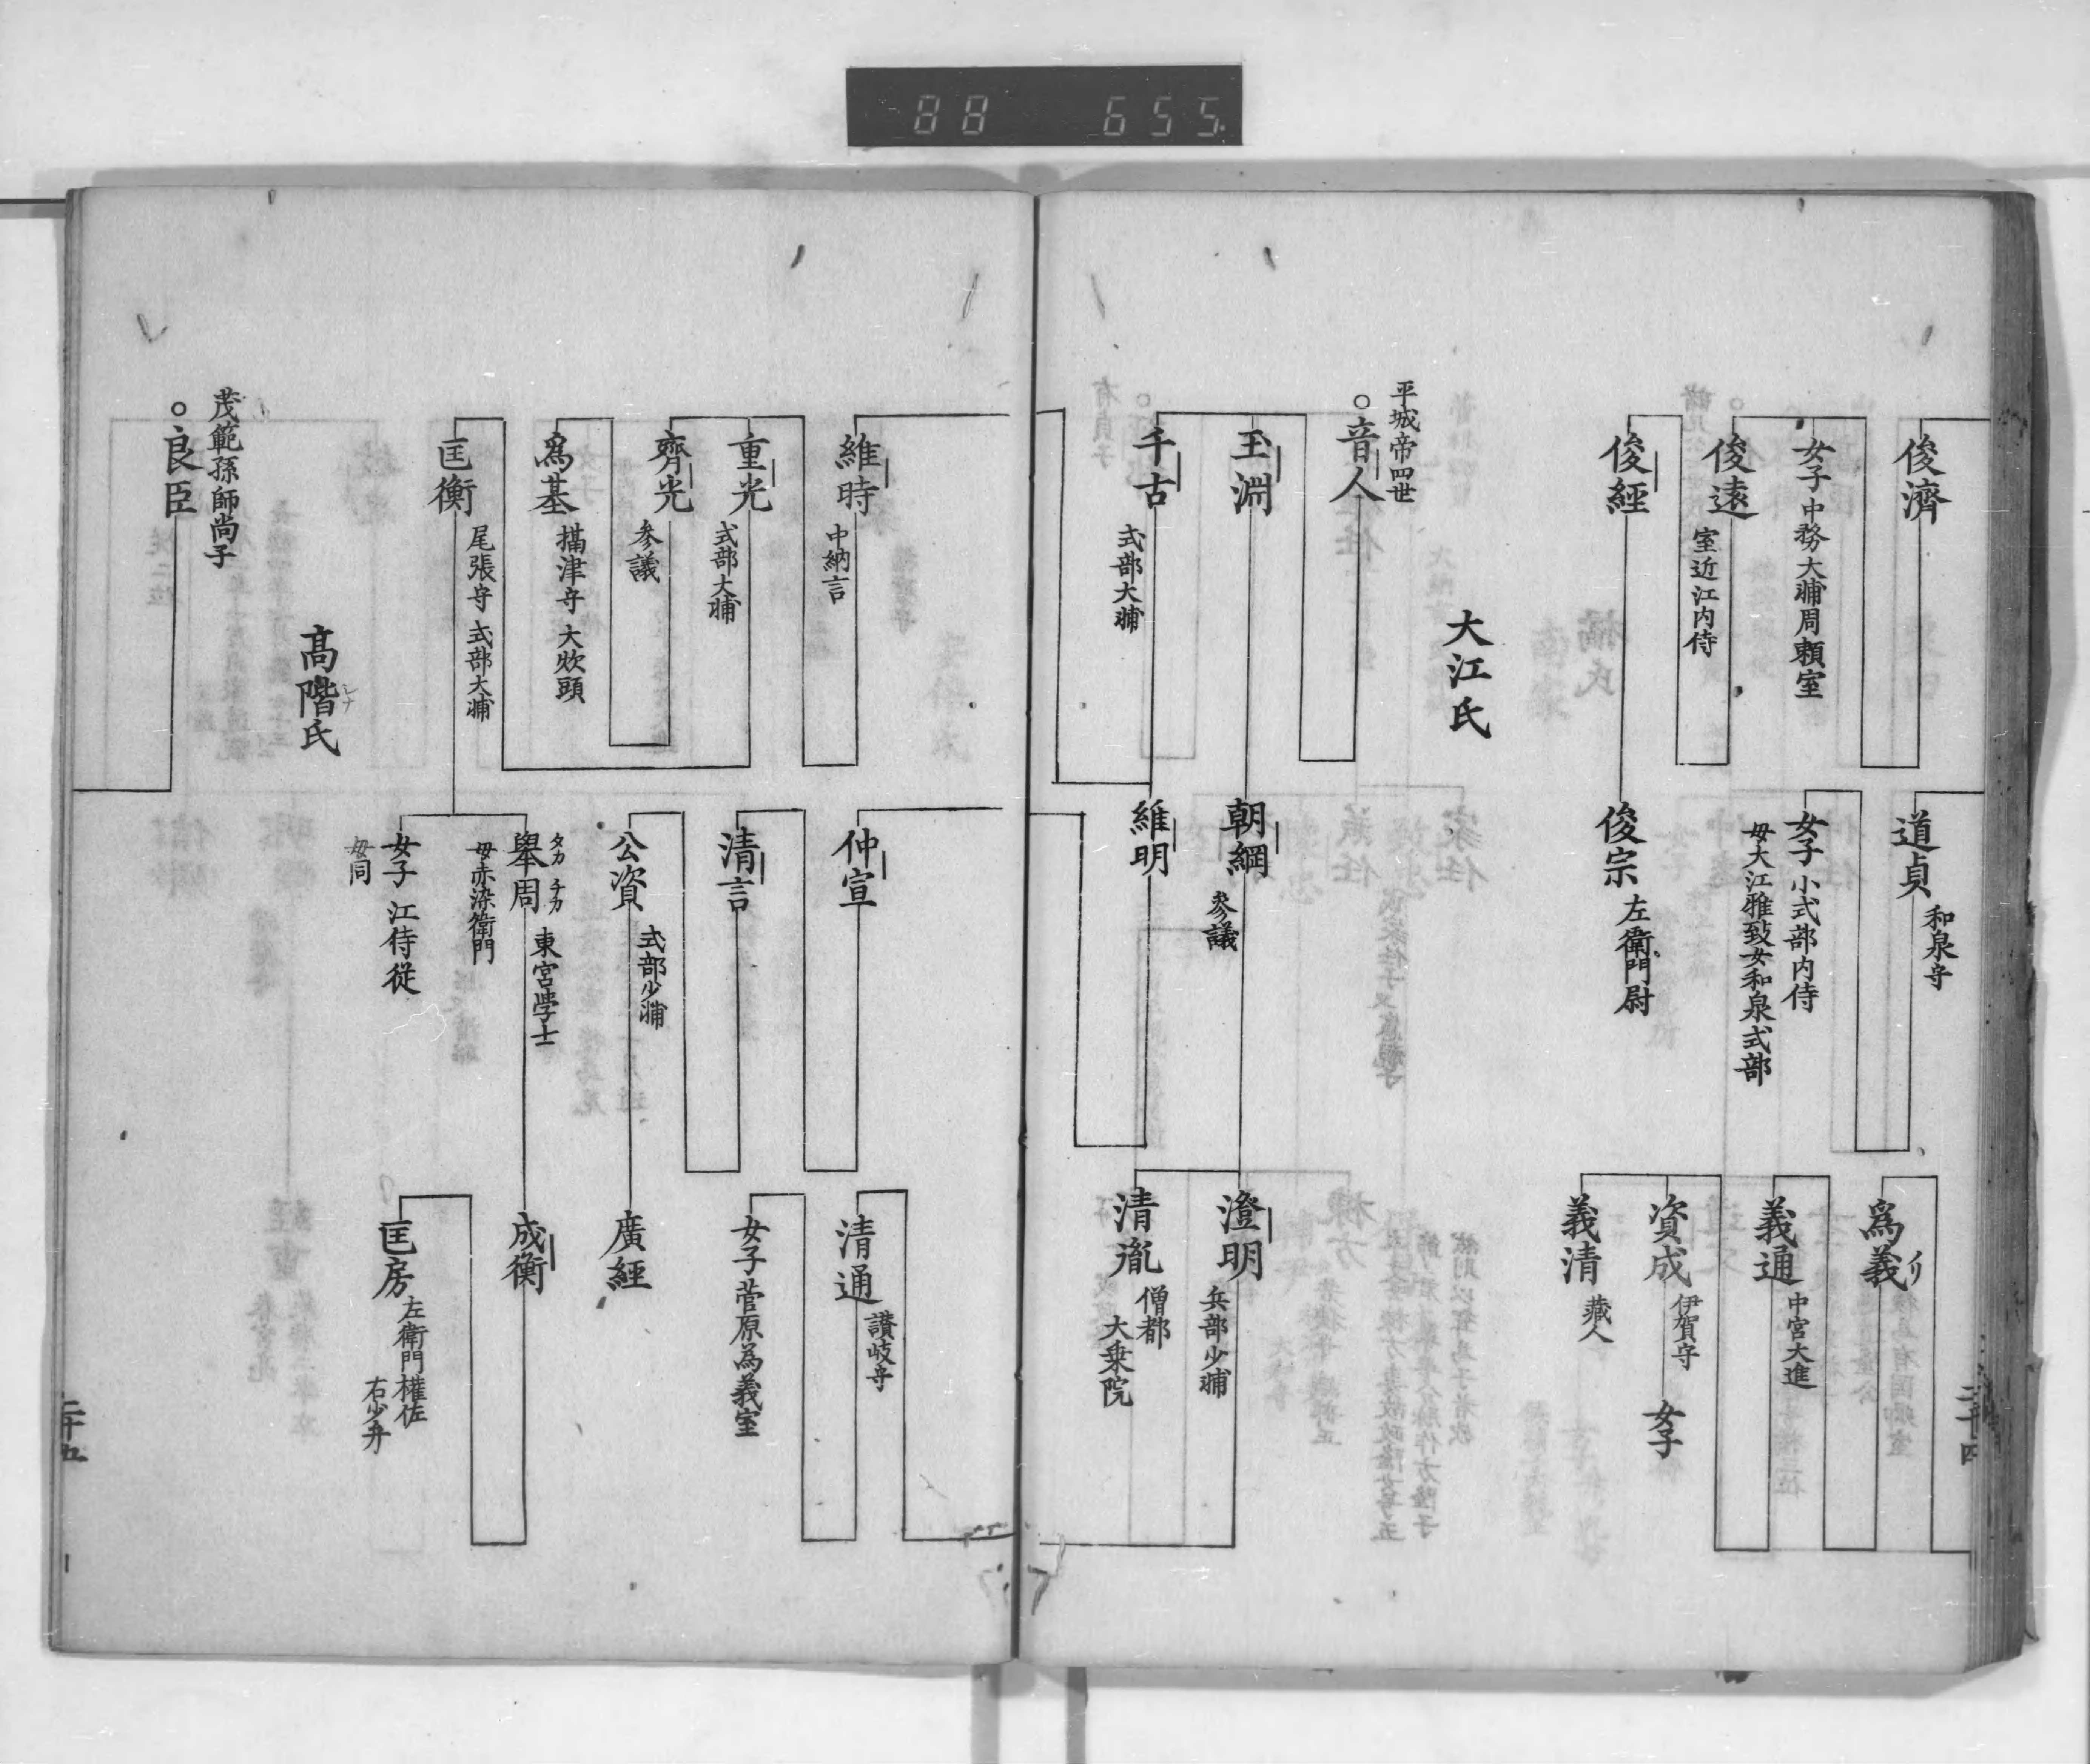 88 655
俊濟
女子 中務大輔周頼室
俊遠 室近江内侍
俊經
道貞 和泉守
女子 小式部内侍
母大江雅致女和泉式部
俊宗 左衛門尉
爲義 ノリ
義通 中宮大進
資成 伊賀守
女子
義清 藏人
二十四
大江氏
平城帝四世
○音人
玉淵
千古 式部大輔
朝綱 参議
維明
澄明 兵部少輔
清胤 僧都
大乗院
維時 中納言
重光 式部大輔
齊光 参議
爲基 攝津守 大炊頭
匡衡 尾張守 式部大輔
仲宣
清言
公資 式部少輔
擧周 タカ チカ 東宮學士
母赤染衛門
女子 江侍従
母同
清通 讃岐守
女子 菅原為義室
廣經
成衡
匡房 左衛門權佐
右少弁
高階氏 シナ
茂範孫師尚子
○良臣
二十五